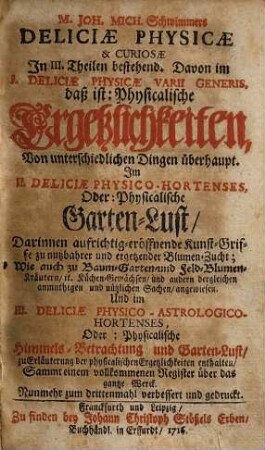 M. JOH. MICH. Schwimmers
DELICIÆ PHYSICÆ
& CURIOSÆ
In III. Theilen bestehend. Davon im
I. DELICIÆ PHYSICÆ VARII GENERIS,
daß ist: Physicalische
Ergetzlichkeiten,
Von unterschiedlichen Dingen überhaupt.
Im
II. DELICIÆ PHYSICO-HORTENSES,
Oder: Physicalische
Garten-Lust/
Darinnen aufrichtig-eröffnende Kunst-Grif-
fe zu nutzbahrer und ergetzender Blumen-Zucht;
Wie auch zu Baum-Garten-und Feld-Blumen-
Kräutern/ it. Küchen-Gewächsen/ und andern dergleichen
anmuthigen und nützlichen Sachen/ angewiesen.
Und im
III. DELICIÆ PHYSICO - ASTROLOGICO-
HORTENSES,
Oder: Physicalische
Himmels-Betrachtung und Garten-Lust/
zu Erläuterung der physicalischen Ergetzlichkeiten enthalten/
Sammt einem vollkommenen Register über das
gantze Werck.
Nunmehr zum drittenmahl verbessert und gedruckt.
Franckfurth und Leipzig/
Zu finden bey Johann Christoph Stößels Erben/
Buchhändl. in Erffurdt/ 1716.